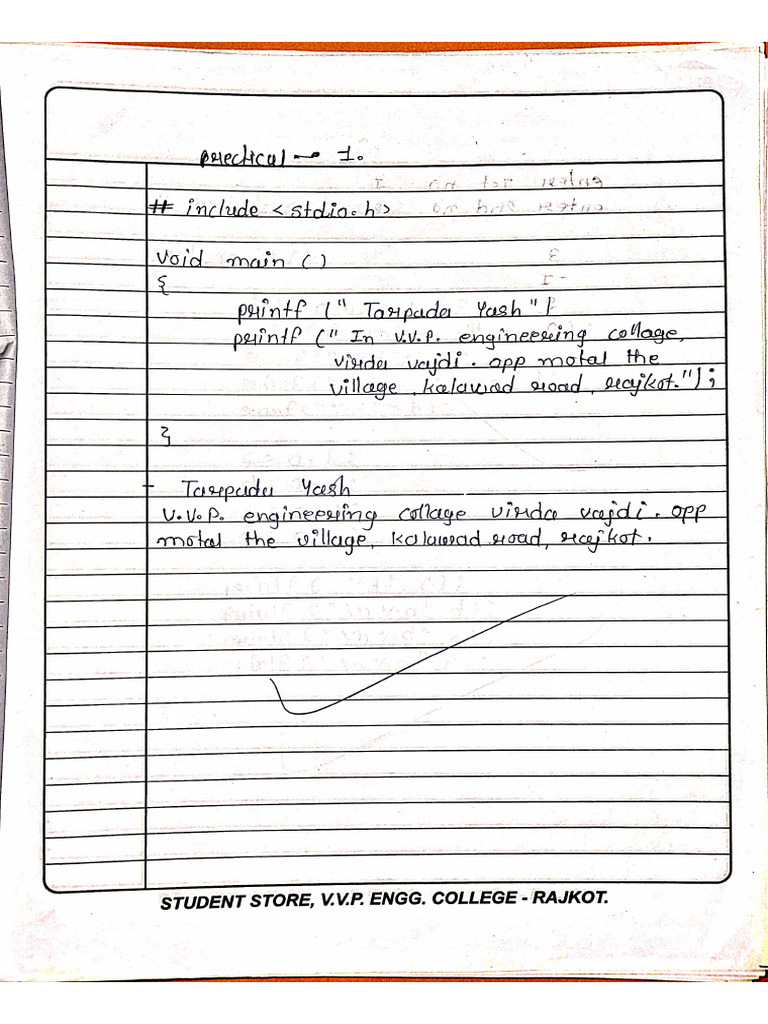 practical → 1.
# include <stdio.h>
void main ()
{
printf (" Tarpada Yash ")
printf (" In V.V.P. engineering collage,
virda vajdi. opp motal the
village, kalawad road, rajkot.");
}
- Tarpada Yash
V.V.P. engineering collage virda vajdi. opp
motal the village, kalawad road, rajkot.
STUDENT STORE, V.V.P. ENGG. COLLEGE - RAJKOT.